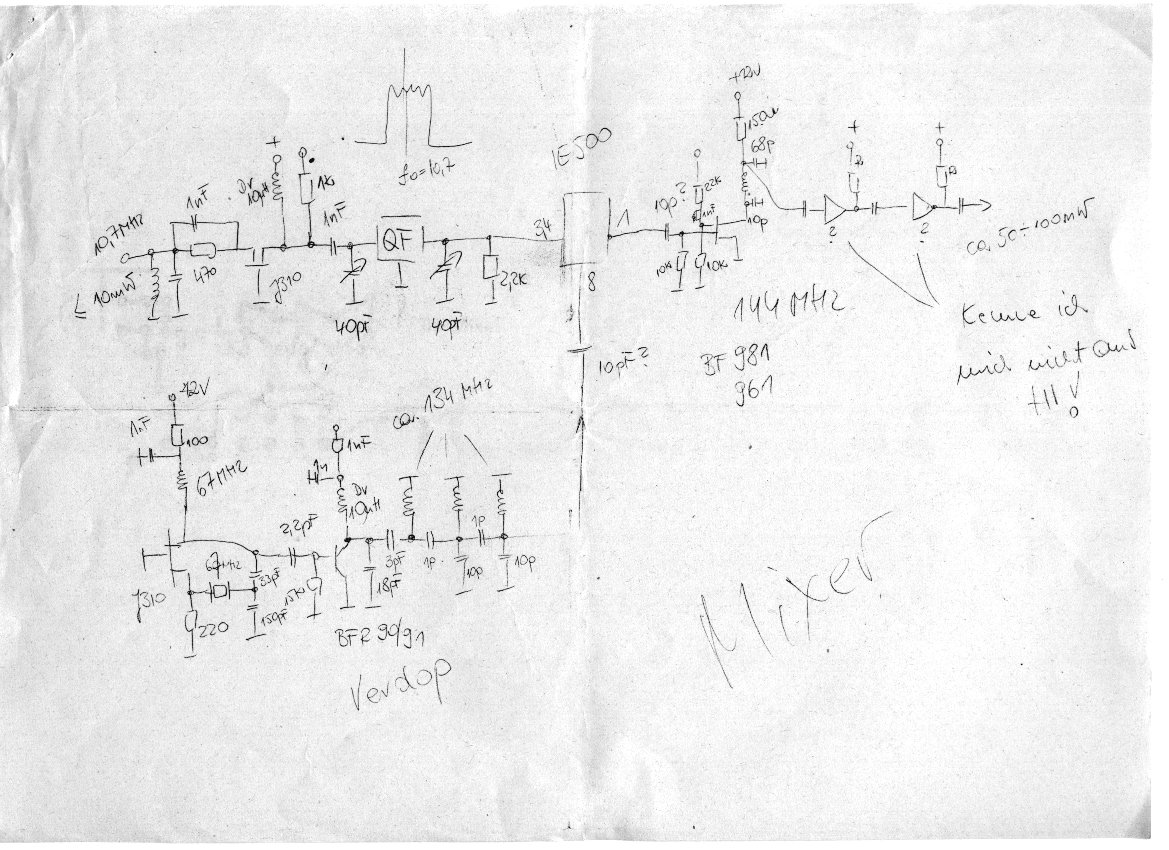 f₀=10,7
10,7MHz
≤ 10mW
1nF
470
J310
Dr
10µH
+
1k
1nF
40pF
QF
40pF
2,2k
IE500
3,4
1
8
10pF?
10p?
22k
1nF
10k
10k
+12V
150Ω
68p
10p
144 MHz
BF 981
961
+
?
+
?
ca. 50÷100mW
Kenne ich
mich nicht aus
!
12V
1nF
100
67MHz
J310
67MHz
220
33pF
150pF
2,2pF
15k
1nF
1n
Dr
10µH
BFR 90/91
Verdop
18pF
3pF
ca. 134 MHz
1p
10p
1p
10p
Mixer